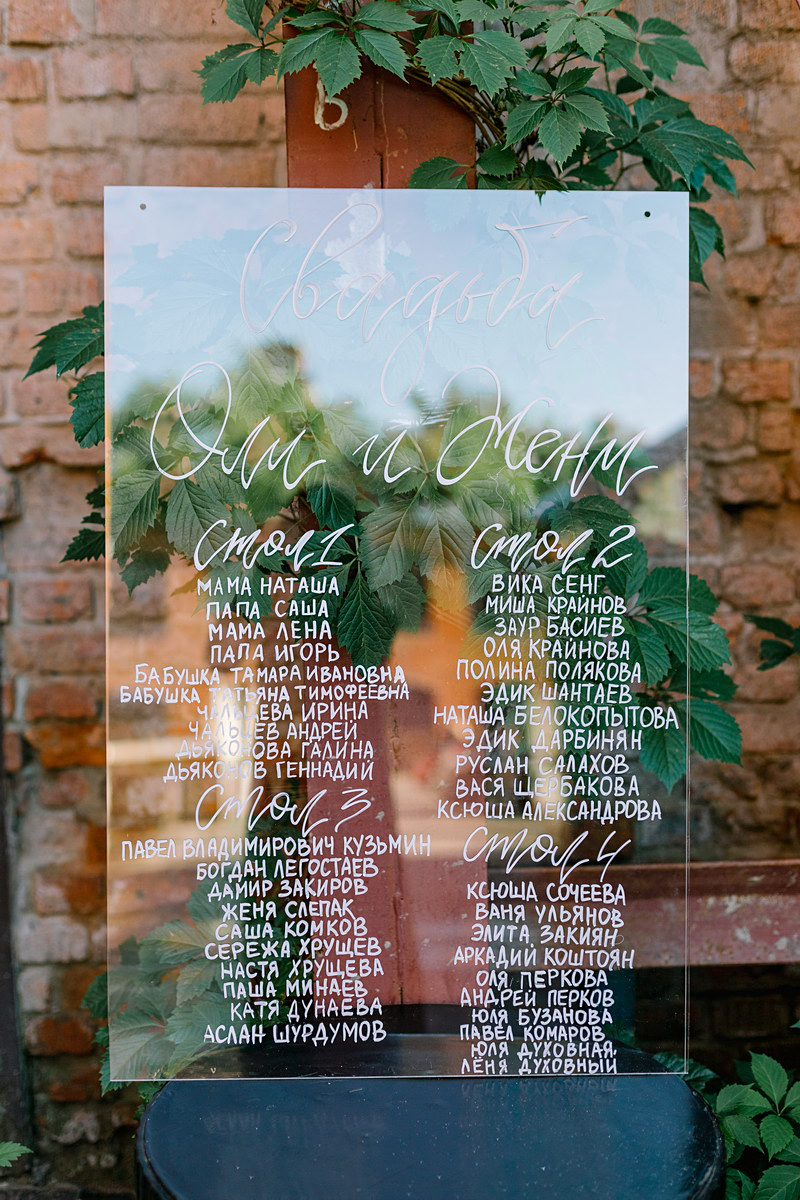 Свадьба
Оли и Жени
стол 1
МАМА НАТАША
ПАПА САША
МАМА ЛЕНА
ПАПА ИГОРЬ
БАБУШКА ТАМАРА ИВАНОВНА
БАБУШКА ТАТЬЯНА ТИМОФЕЕВНА
ЧАЛЬЦЕВА ИРИНА
ЧАЛЬЦЕВ АНДРЕЙ
ДЬЯКОНОВА ГАЛИНА
ДЬЯКОНОВ ГЕННАДИЙ
стол 2
ВИКА СЕНГ
МИША КРАЙНОВ
ЗАУР БАСИЕВ
ОЛЯ КРАЙНОВА
ПОЛИНА ПОЛЯКОВА
ЭДИК ШАНТАЕВ
НАТАША БЕЛОКОПЫТОВА
ЭДИК ДАРБИНЯН
РУСЛАН САЛАХОВ
ВАСЯ ЩЕРБАКОВА
КСЮША АЛЕКСАНДРОВА
стол 3
ПАВЕЛ ВЛАДИМИРОВИЧ КУЗЬМИН
БОГДАН ЛЕГОСТАЕВ
ДАМИР ЗАКИРОВ
ЖЕНЯ СЛЕПАК
САША КОМКОВ
СЕРЕЖА ХРУЩЕВ
НАСТЯ ХРУЩЕВА
ПАША МИНАЕВ
КАТЯ ДУНАЕВА
АСЛАН ШУРДУМОВ
стол 4
КСЮША СОЧЕЕВА
ВАНЯ УЛЬЯНОВ
ЭЛИТА ЗАКИЯН
АРКАДИЙ КОШТОЯН
ОЛЯ ПЕРКОВА
АНДРЕЙ ПЕРКОВ
ЮЛЯ БУЗАНОВА
ПАВЕЛ КОМАРОВ
ЮЛЯ ДУХОВНАЯ
ЛЁНЯ ДУХОВНЫЙ